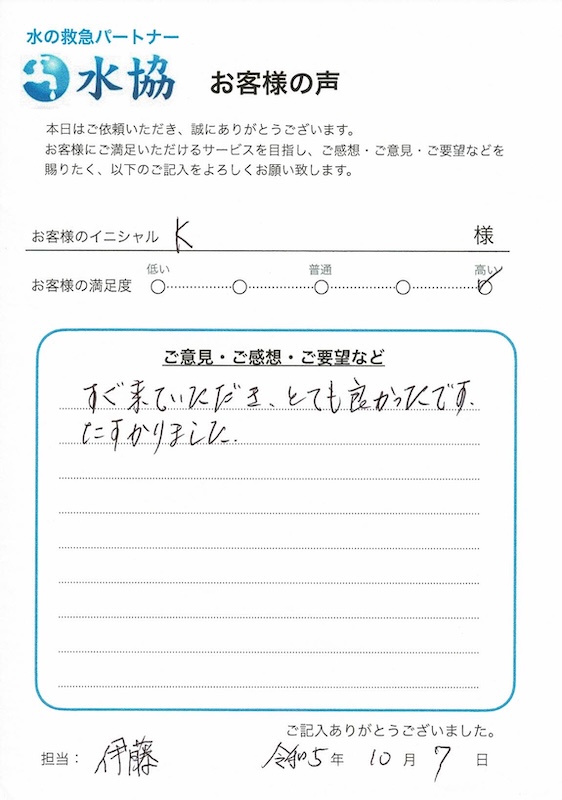 水の救急パートナー
水協 お客様の声
本日はご依頼いただき、誠にありがとうございます。
お客様にご満足いただけるサービスを目指し、ご感想・ご意見・ご要望などを
賜りたく、以下のご記入をよろしくお願い致します。
お客様のイニシャル K 様
低い 普通 高い
お客様の満足度
ご意見・ご感想・ご要望など
すぐ来ていただき、とても良かったです.
たすかりました.
ご記入ありがとうございました。
担当: 伊藤 令和5年 10月 7日